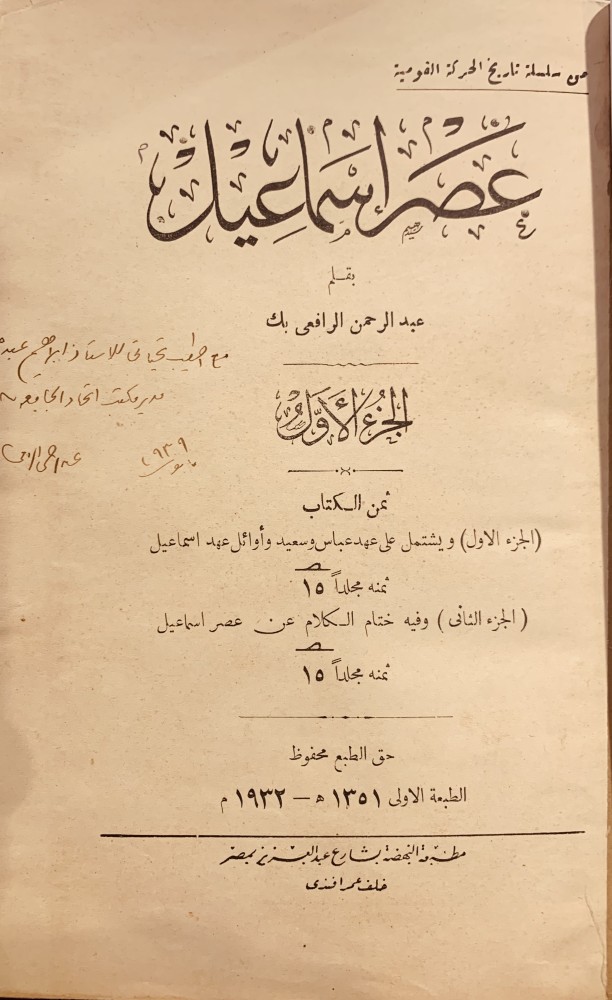 من سلسلة تاريخ الحركة القومية
عصر إسماعيل
بقلم
عبد الرحمن الرافعى بك
مع أطيب تحياتى للاستاذ ابراهيم عبده
مدير مكتب اتحاد الجامعة
عبد الرحمن الرافعى
مارس ١٩٣٩
الجزء الأول
ثمن الكتاب
(الجزء الاول) ويشتمل على عهد عباس وسعيد وأوائل عهد اسماعيل
ثمنه مجلداً ١٥
(الجزء الثانى) وفيه ختام الكلام عن عصر اسماعيل
ثمنه مجلداً ١٥
حق الطبع محفوظ
الطبعة الاولى ١٣٥١ ه — ١٩٣٢ م
مطبعة النهضة بشارع عبد العزيز بمصر
خلف عمر افندى